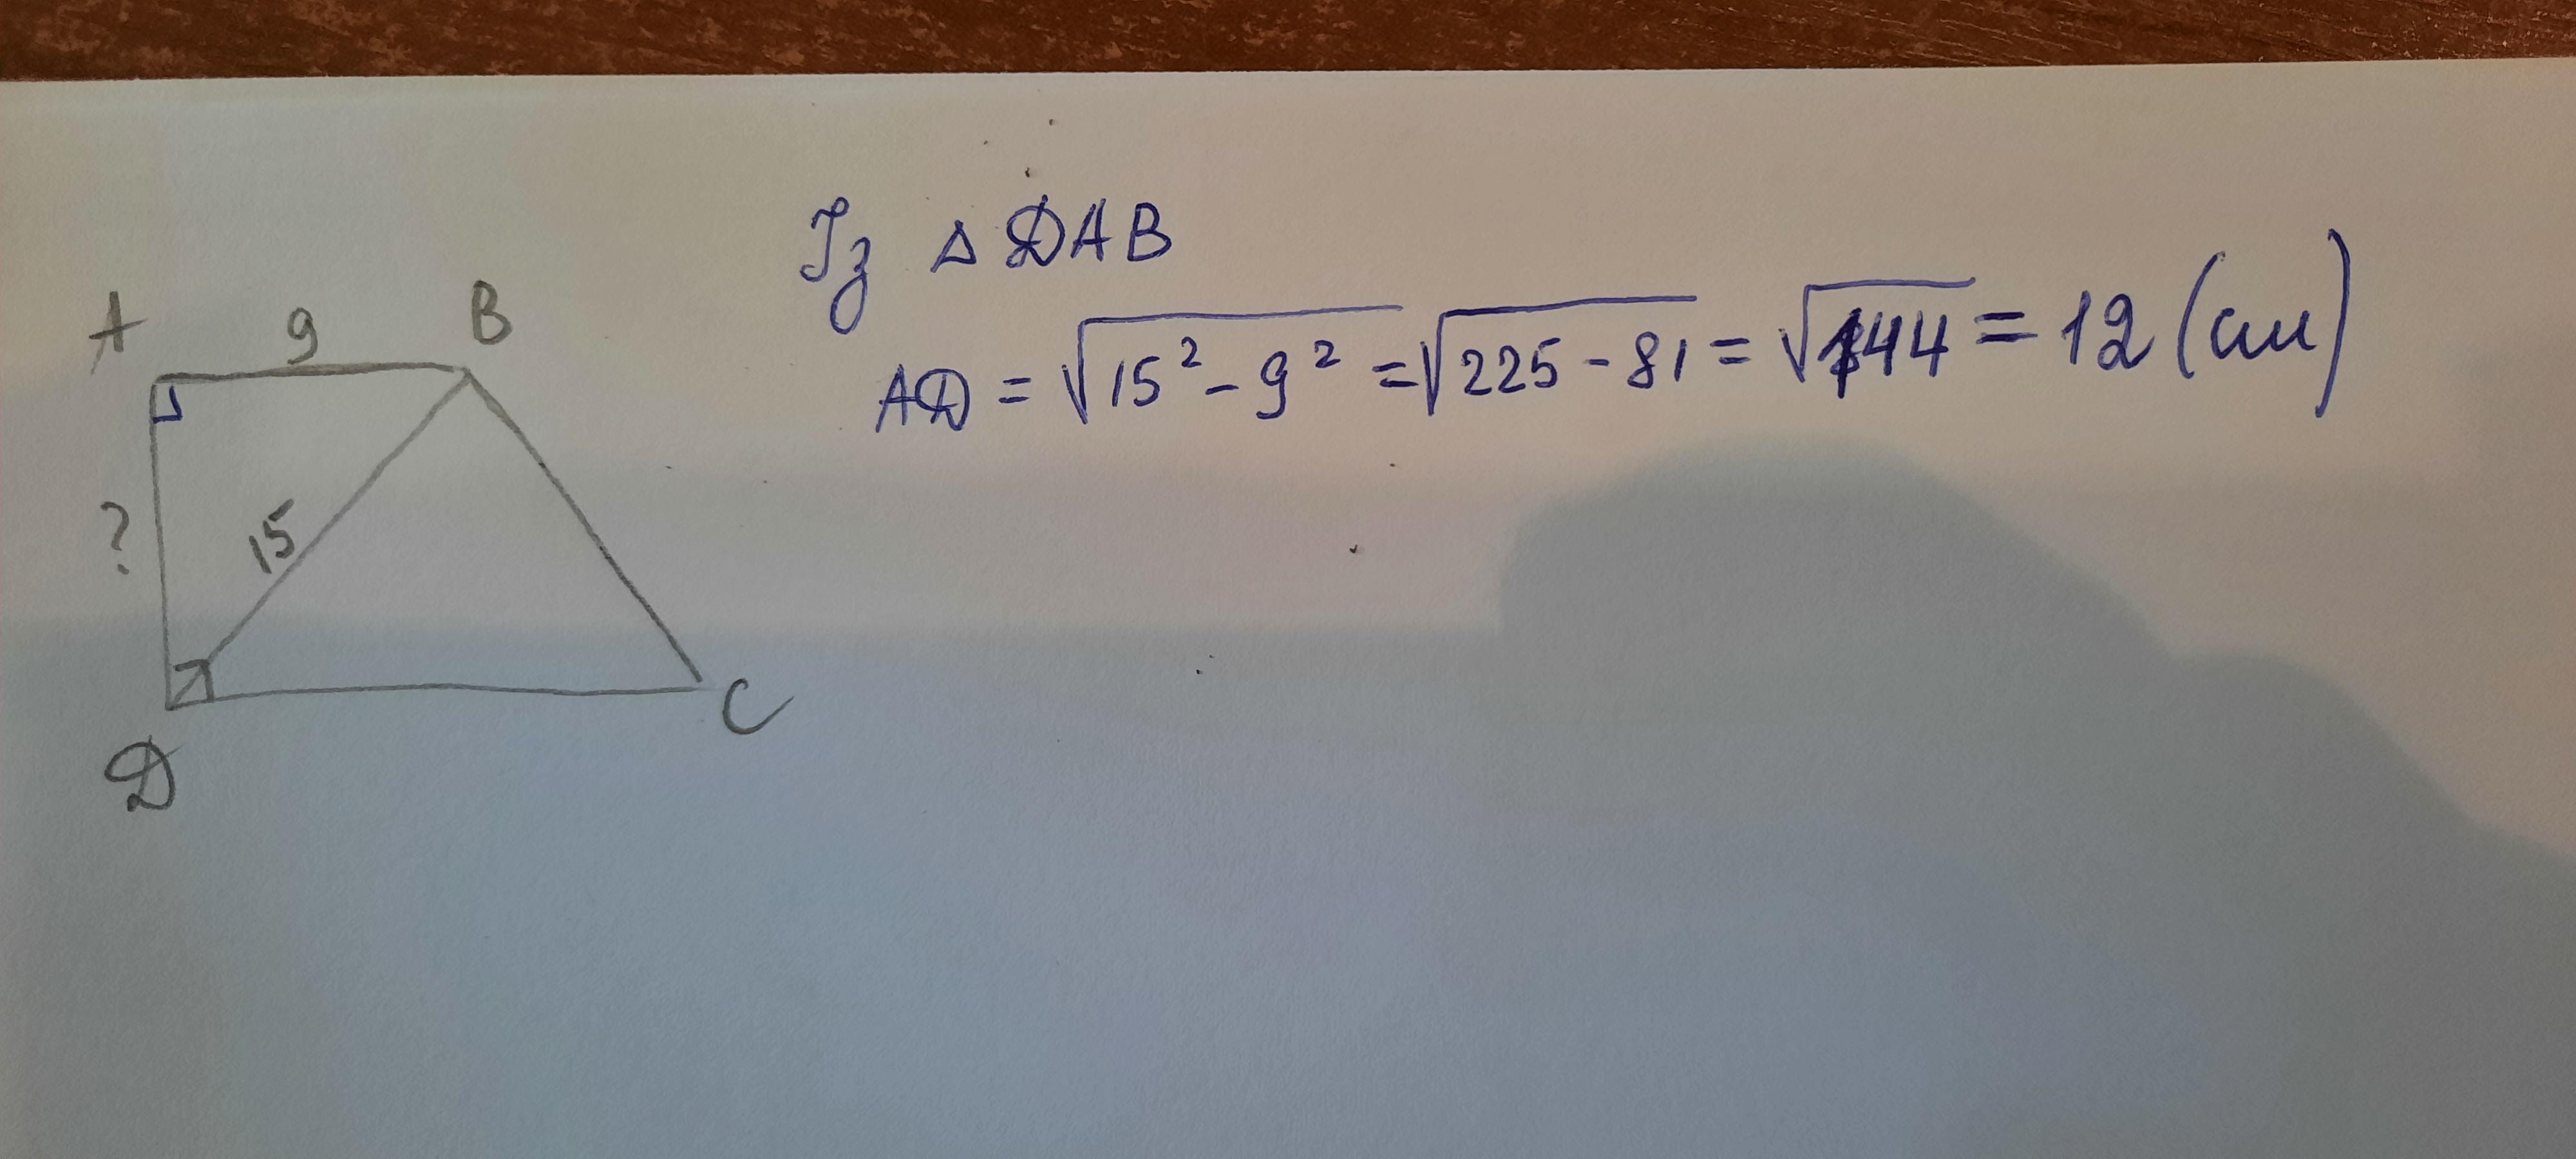 A 9 B
? 15
D C
Із △ DAB
AD = √15² - 9² = √225 - 81 = √144 = 12 (см)